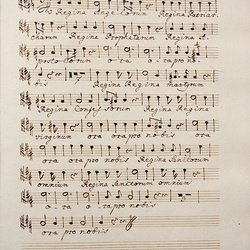 Regina Angelorum Regina Patriar-
charum Regina Prophetarum Regina A-
postolorum ora ora pro no-
bis Regina Regina martyrum
Regina Confessorum Regina
virginum ora ora pro nobis
ora ora pro nobis Regina Sanctorum
omnium Regina Sanctorum omnium
ora ora pro nobis
ora pro nobis